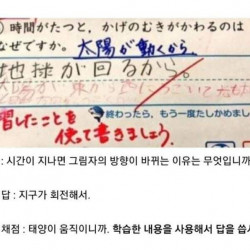 時間がたつと、かげのむきがかわるのは
なぜですか。太陽が動くから。
地球が回るから。
終わったら、もう一度たしかめまし
習したことを
使って書きましょう。
: 시간이 지나면 그림자의 방향이 바뀌는 이유는 무엇입니까
답 : 지구가 회전해서.
채점 : 태양이 움직이니까. 학습한 내용을 사용해서 답을 씁시